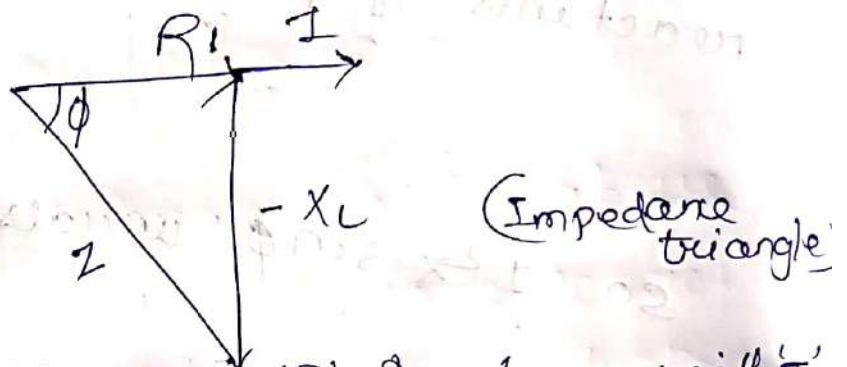 R1 I
ϕ
- XL
Z
(Impedance
triangle)